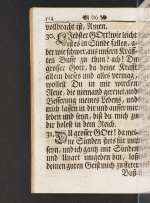 vollbracht ist. Amen.
30. Liebster GOtt! wie leicht
ist es in Sünde fallen, a-
ber wie schwer aus meinen Kräff-
ten Busse zu thun? ach! Du
grosser Gott, da deine Krafft
allein dieses und alles vermag,
wollest Du in mir würcken
Reue, die niemand gereuet, und
Besserung meines Lebens, und
mich lassen in dir und unter mir
leben und seyn, biß du mich zu
dir holest in dein Reich.
31. Ach grosser GOtt! da mei-
ne Sünden stets für mir
seyn, und ich gantz mit Sünden
und Unart umgeben bin, laß
deinen guten Geist mich zu steter
Buß